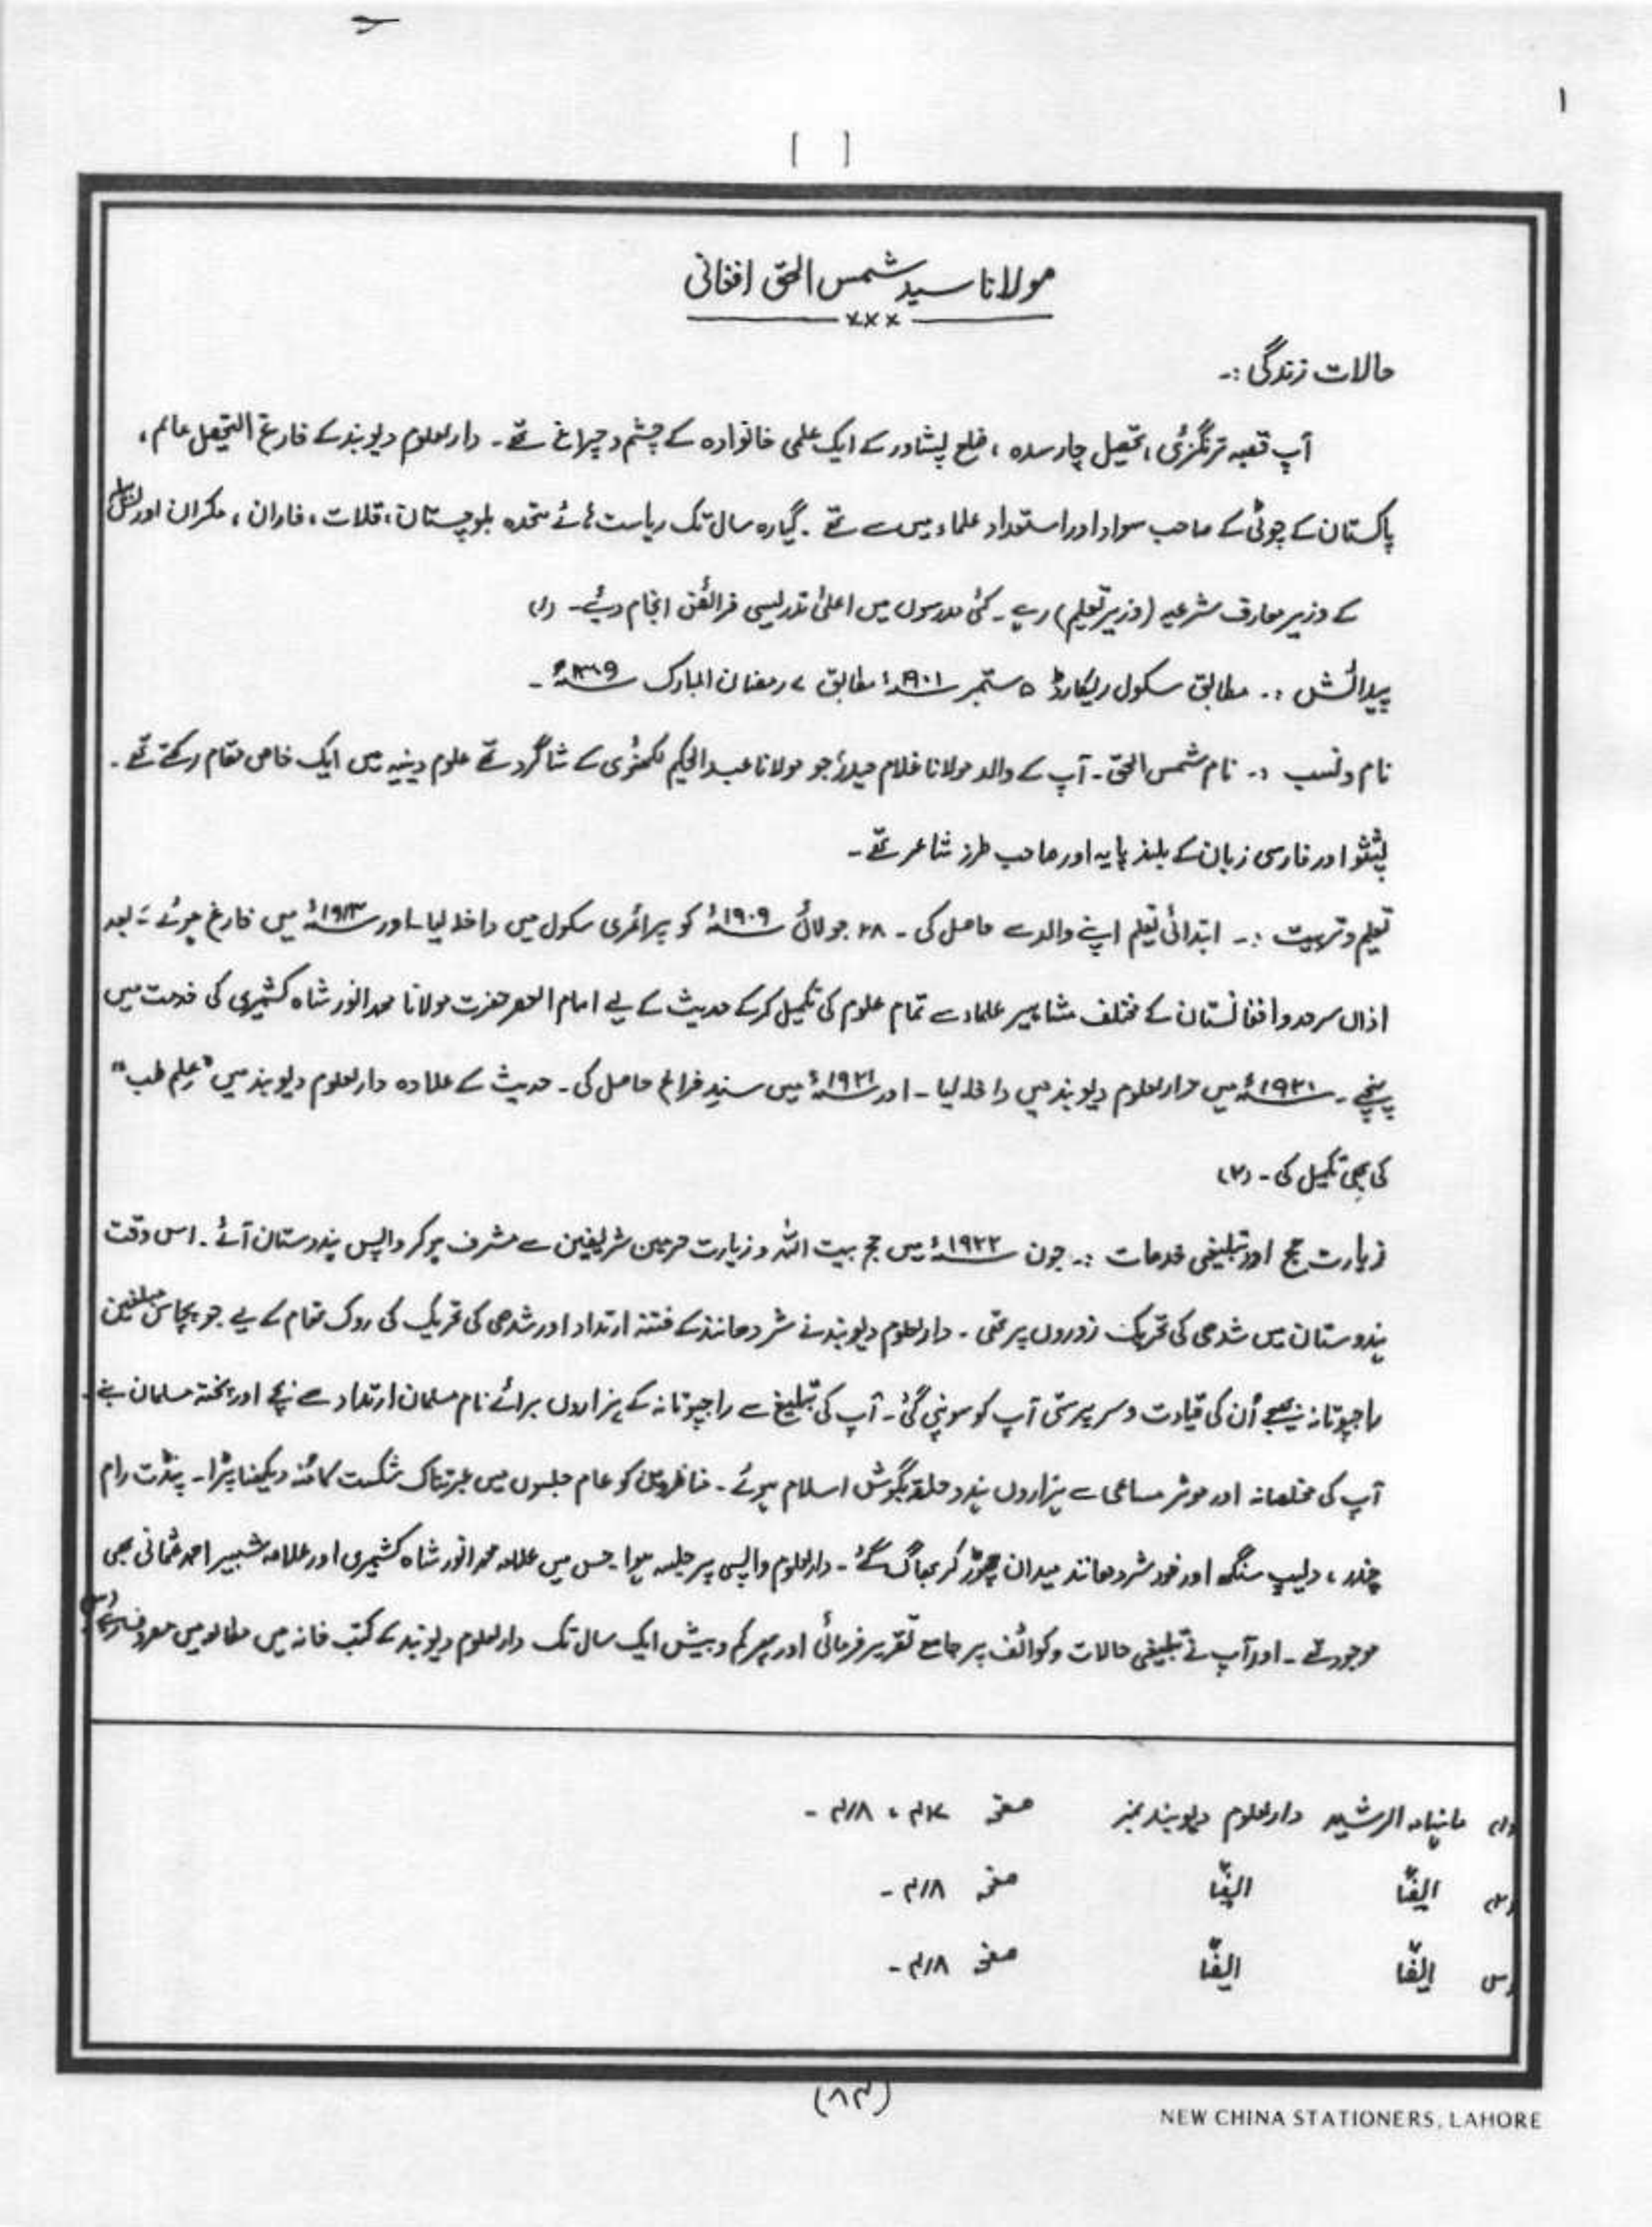 ۱
[ ]
مولانا سید شمس الحق افغانی
×××
حالات زندگی :۔
آپ قصبہ ترنگزئی، تحصیل چارسدہ ، ضلع پشاور کے ایک علمی خانوادہ کے چشم و چراغ تھے ۔ دارلعلوم دیوبند کے فارغ التحصیل عالم ،
پاکستان کے چوٹی کے صاحب سواد اور استعداد علماء میں سے تھے ۔ گیارہ سال تک ریاست ہائے متحدہ بلوچستان ، قلات ، خاران ، مکران اور لسبیلہ
کے وزیر معارف شرعیہ (وزیر تعلیم) رہے ۔ کئی مدرسوں میں اعلیٰ تدریسی فرائض انجام دیئے ۔ (۱)
پیدائش :۔ مطابق سکول ریکارڈ ۵ ستمبر ۱۹۰۱ء مطابق ۷ رمضان المبارک
نام ونسب :۔ نام شمس الحق ۔ آپ کے والد مولانا غلام حیدرؒ جو مولانا عبد الحکیم لکھنؤی کے شاگرد تھے علوم دینیہ میں ایک خاص مقام رکھتے تھے ۔
پشتو اور فارسی زبان کے بلند پایہ اور صاحب طرز شاعر تھے ۔
تعلیم وتربیت :۔ ابتدائی تعلیم اپنے والد سے حاصل کی ۔ ۲۸ جولائی ۱۹۰۹ء کو پرائمری سکول میں داخلہ لیا ۔ اور ۱۹۱۳ء میں فارغ ہوئے ۔ بعد
اذاں سرحد و افغانستان کے مختلف مشاہیر علماء سے تمام علوم کی تکمیل کرکے حدیث کے لیے امام العصر حضرت مولانا محمد انور شاہ کشمیری کی خدمت میں
پہنچے ۔ ۱۹۲۱ء میں دارلعلوم دیوبند میں داخلہ لیا ۔ اور ۱۹۲۱ء میں سندِ فراغ حاصل کی ۔ حدیث کے علاوہ دارلعلوم دیوبند میں "علم طب"
کی بھی تکمیل کی ۔ (۲)
زیارت حج اور تبلیغی خدمات :۔ جون ۱۹۲۲ء میں حج بیت اللہ و زیارت حرمین شریفین سے مشرف ہو کر واپس ہندوستان آئے ۔ اس وقت
ہندوستان میں شدھی کی تحریک زوروں پر تھی ۔ دارلعلوم دیوبند نے شردھانند کے فتنہ ارتداد اور شدھی کی تحریک کی روک تھام کے لیے جو پچاس مبلغین
راجپوتانہ بھیجے اُن کی قیادت و سرپرستی آپ کو سونپی گئی ۔ آپ کی تبلیغ سے راجپوتانہ کے ہزاروں برائے نام مسلمان ارتداد سے بچے اور پختہ مسلمان بنے ۔
آپ کی مخلصانہ اور موثر مساعی سے ہزاروں ہندو حلقہ بگوش اسلام ہوئے ۔ مناظرین کو عام جلسوں میں عبرتناک شکست کا منہ دیکھنا پڑا ۔ پنڈت رام
چندر ، دلیپ سنگھ اور خود شردھانند میدان چھوڑ کر بھاگ گئے ۔ دارلعلوم واپسی پر جلسہ ہوا جس میں علامہ محمد انور شاہ کشمیری اور علامہ شبیر احمد عثمانی بھی
موجود تھے ۔ اور آپ نے تبلیغی حالات و کوائف پر جامع تقریر فرمائی اور پھر کم و بیش ایک سال تک دارلعلوم دیوبند کے کتب خانہ میں مطالعہ میں مصروف رہے (۳)
(۱) ماہنامہ الرشید دارلعلوم دیوبند نمبر صفحہ ۴۱۷ ، ۴۱۸ ۔
(۲) ایضًا ایضًا صفحہ ۴۱۸ ۔
(۳) ایضًا ایضًا صفحہ ۴۱۸ ۔
(۸۴)
NEW CHINA STATIONERS, LAHORE